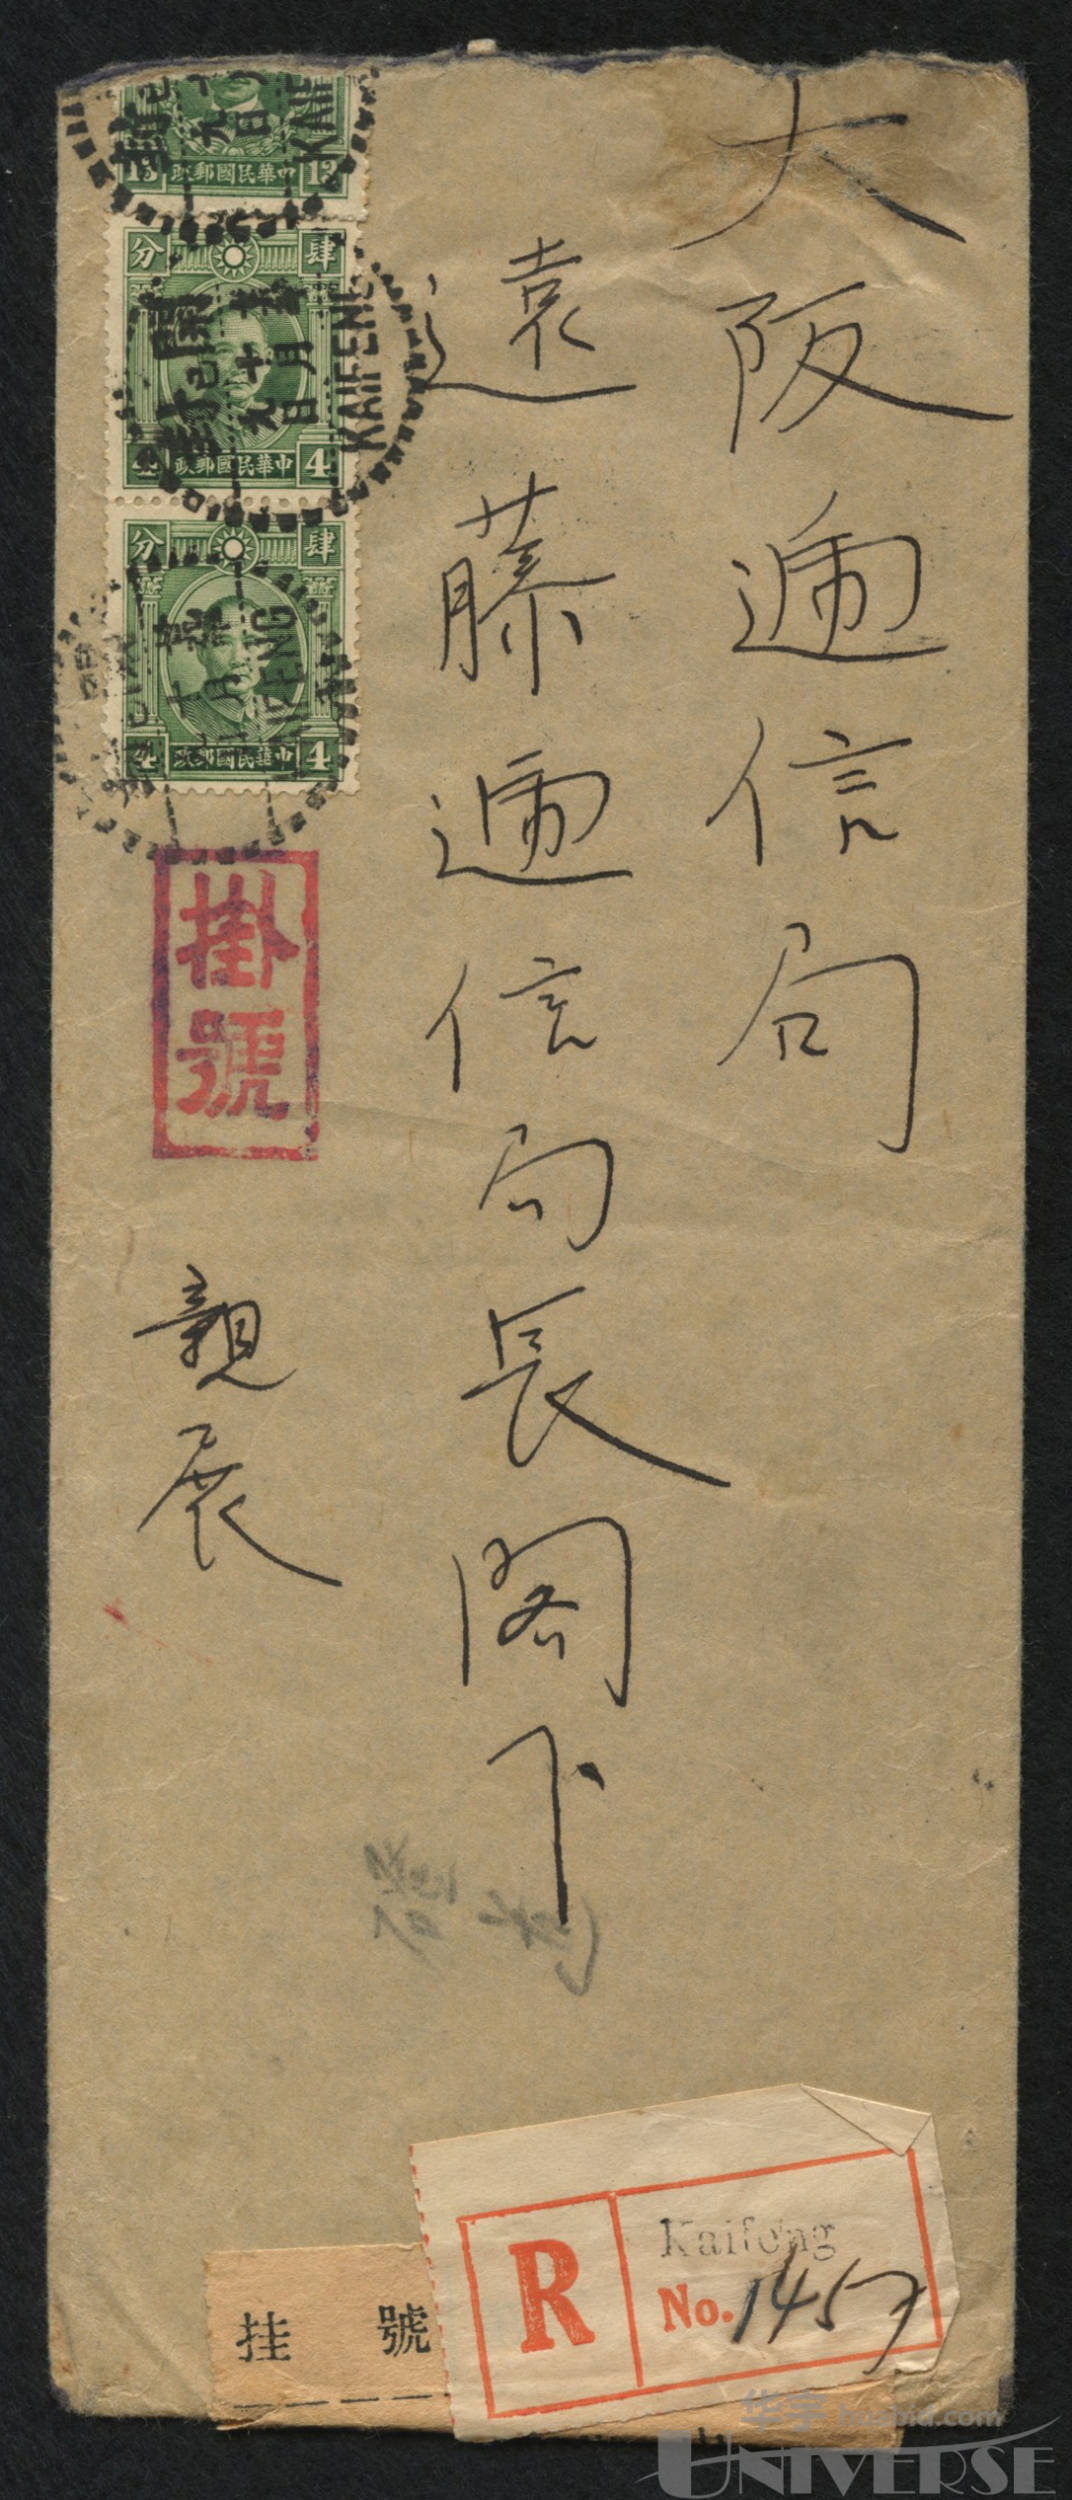 大阪逓信局
遠藤逓信局長閣下
親展
13 中華民國郵政 13
分 肆
4 中華民國郵政 4
KAIFENG
分 肆
4 中華民國郵政 4
掛號
挂 號
R
Kaifeng
No. 1457
华宇 husbid.com
UNIVERSE